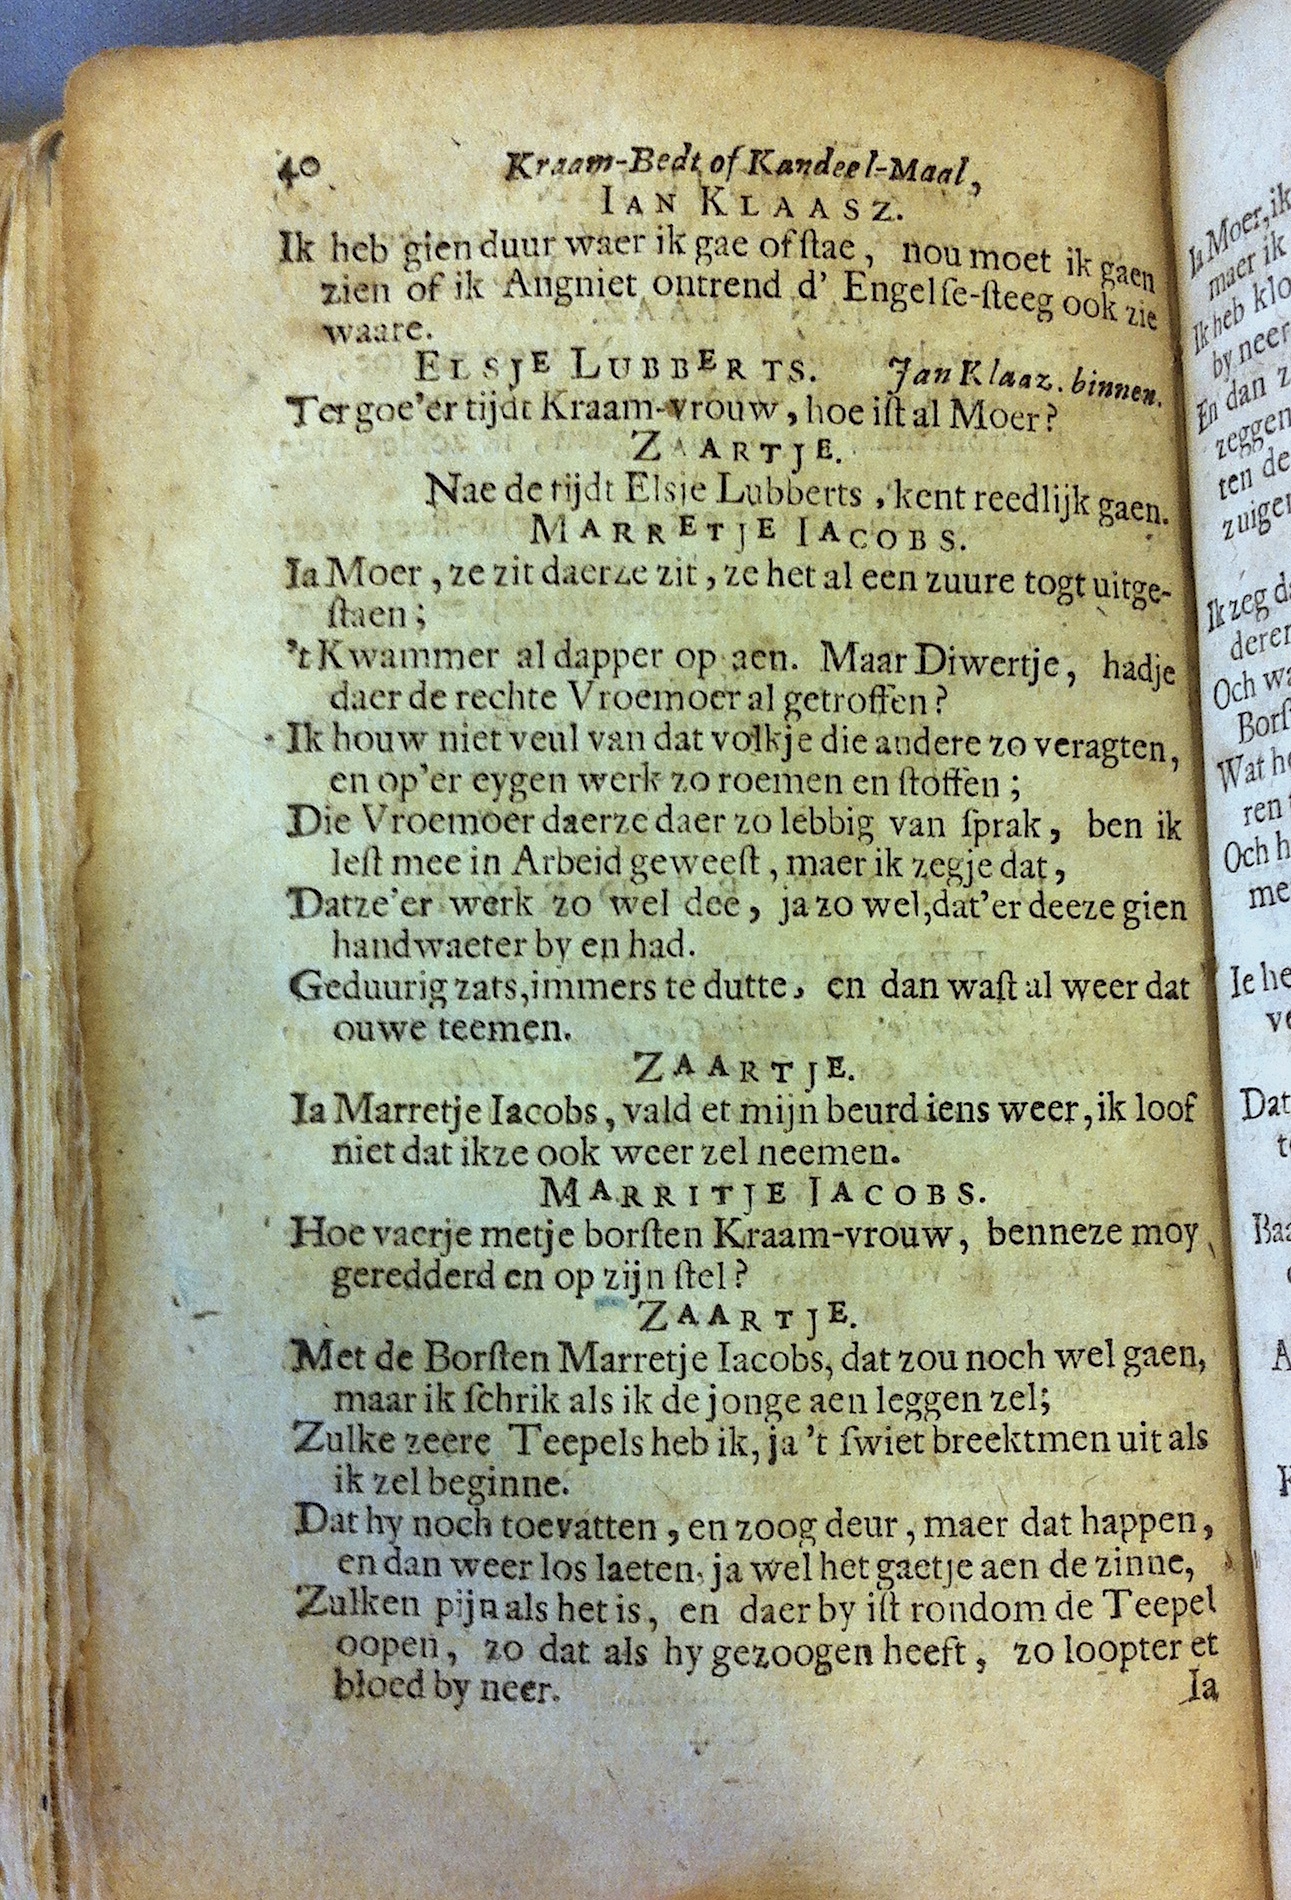 40 Kraam-Bedt of Kandeel-Maal,
IAN KLAASZ.
Ik heb gien duur waer ik gae of ſtae, nou moet ik gaen
zien of ik Angniet ontrend d' Engelſe-ſteeg ook zie
waare.
ELSJE LUBBERTS. Jan Klaaz. binnen.
Ter goe'er tijdt Kraam-vrouw, hoe iſt al Moer?
ZAARTJE.
Nae de tijdt Elsje Lubberts, 'kent reedlijk gaen.
MARRETJE IACOBS.
Ia Moer, ze zit daerze zit, ze het al een zuure togt uitge-
ſtaen;
't Kwammer al dapper op aen. Maar Diwertje, hadje
daer de rechte Vroemoer al getroffen?
Ik houw niet veul van dat volkje die andere zo veragten,
en op'er eygen werk zo roemen en ſtoffen;
Die Vroemoer daerze daer zo lebbig van ſprak, ben ik
leſt mee in Arbeid geweeſt, maer ik zegje dat,
Datze'er werk zo wel dee, ja zo wel, dat'er deeze gien
handwaeter by en had.
Geduurig zats, immers te dutte, en dan waſt al weer dat
ouwe teemen.
ZAARTJE.
Ia Marretje Iacobs, vald et mijn beurd iens weer, ik loof
niet dat ikze ook weer zel neemen.
MARRITJE IACOBS.
Hoe vaerje metje borſten Kraam-vrouw, benneze moy
geredderd en op zijn ſtel?
ZAARTJE.
Met de Borſten Marretje Iacobs, dat zou noch wel gaen,
maar ik ſchrik als ik de jonge aen leggen zel;
Zulke zeere Teepels heb ik, ja 't ſwiet breektmen uit als
ik zel beginne.
Dat hy noch toevatten, en zoog deur, maer dat happen,
en dan weer los laeten, ja wel het gaetje aen de zinne,
Zulken pijn als het is, en daer by iſt rondom de Teepel
oopen, zo dat als hy gezoogen heeft, zo loopter et
bloed by neer.
Ia
Ia Moer, ik
maer ik
Ik heb klo
by neer
En dan z
zeggen
ten de
zuige
Ik zeg d
derer
Och wa
Borſ
Wat he
ren
Och h
me
Ie he
ve
Dat